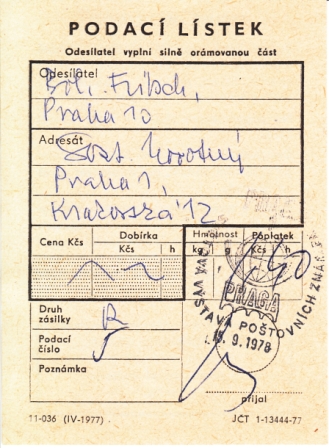 PODACÍ LÍSTEK
Odesílatel vyplní silně orámovanou část
Odesílatel
Fritsch,
Praha 10
Adresát
Novotný
Praha 1,
12
Cena Kčs
Dobírka
Kčs h
Hmotnost
kg g
Poplatek
Kčs h
Druh
zásilky R
Podací
číslo
Poznámka
PRAGA
VÝSTAVA POSTOVNÍCH ZNÁM
9.1978
přijal
11-036 (IV-1977)
JČT 1-13444-77